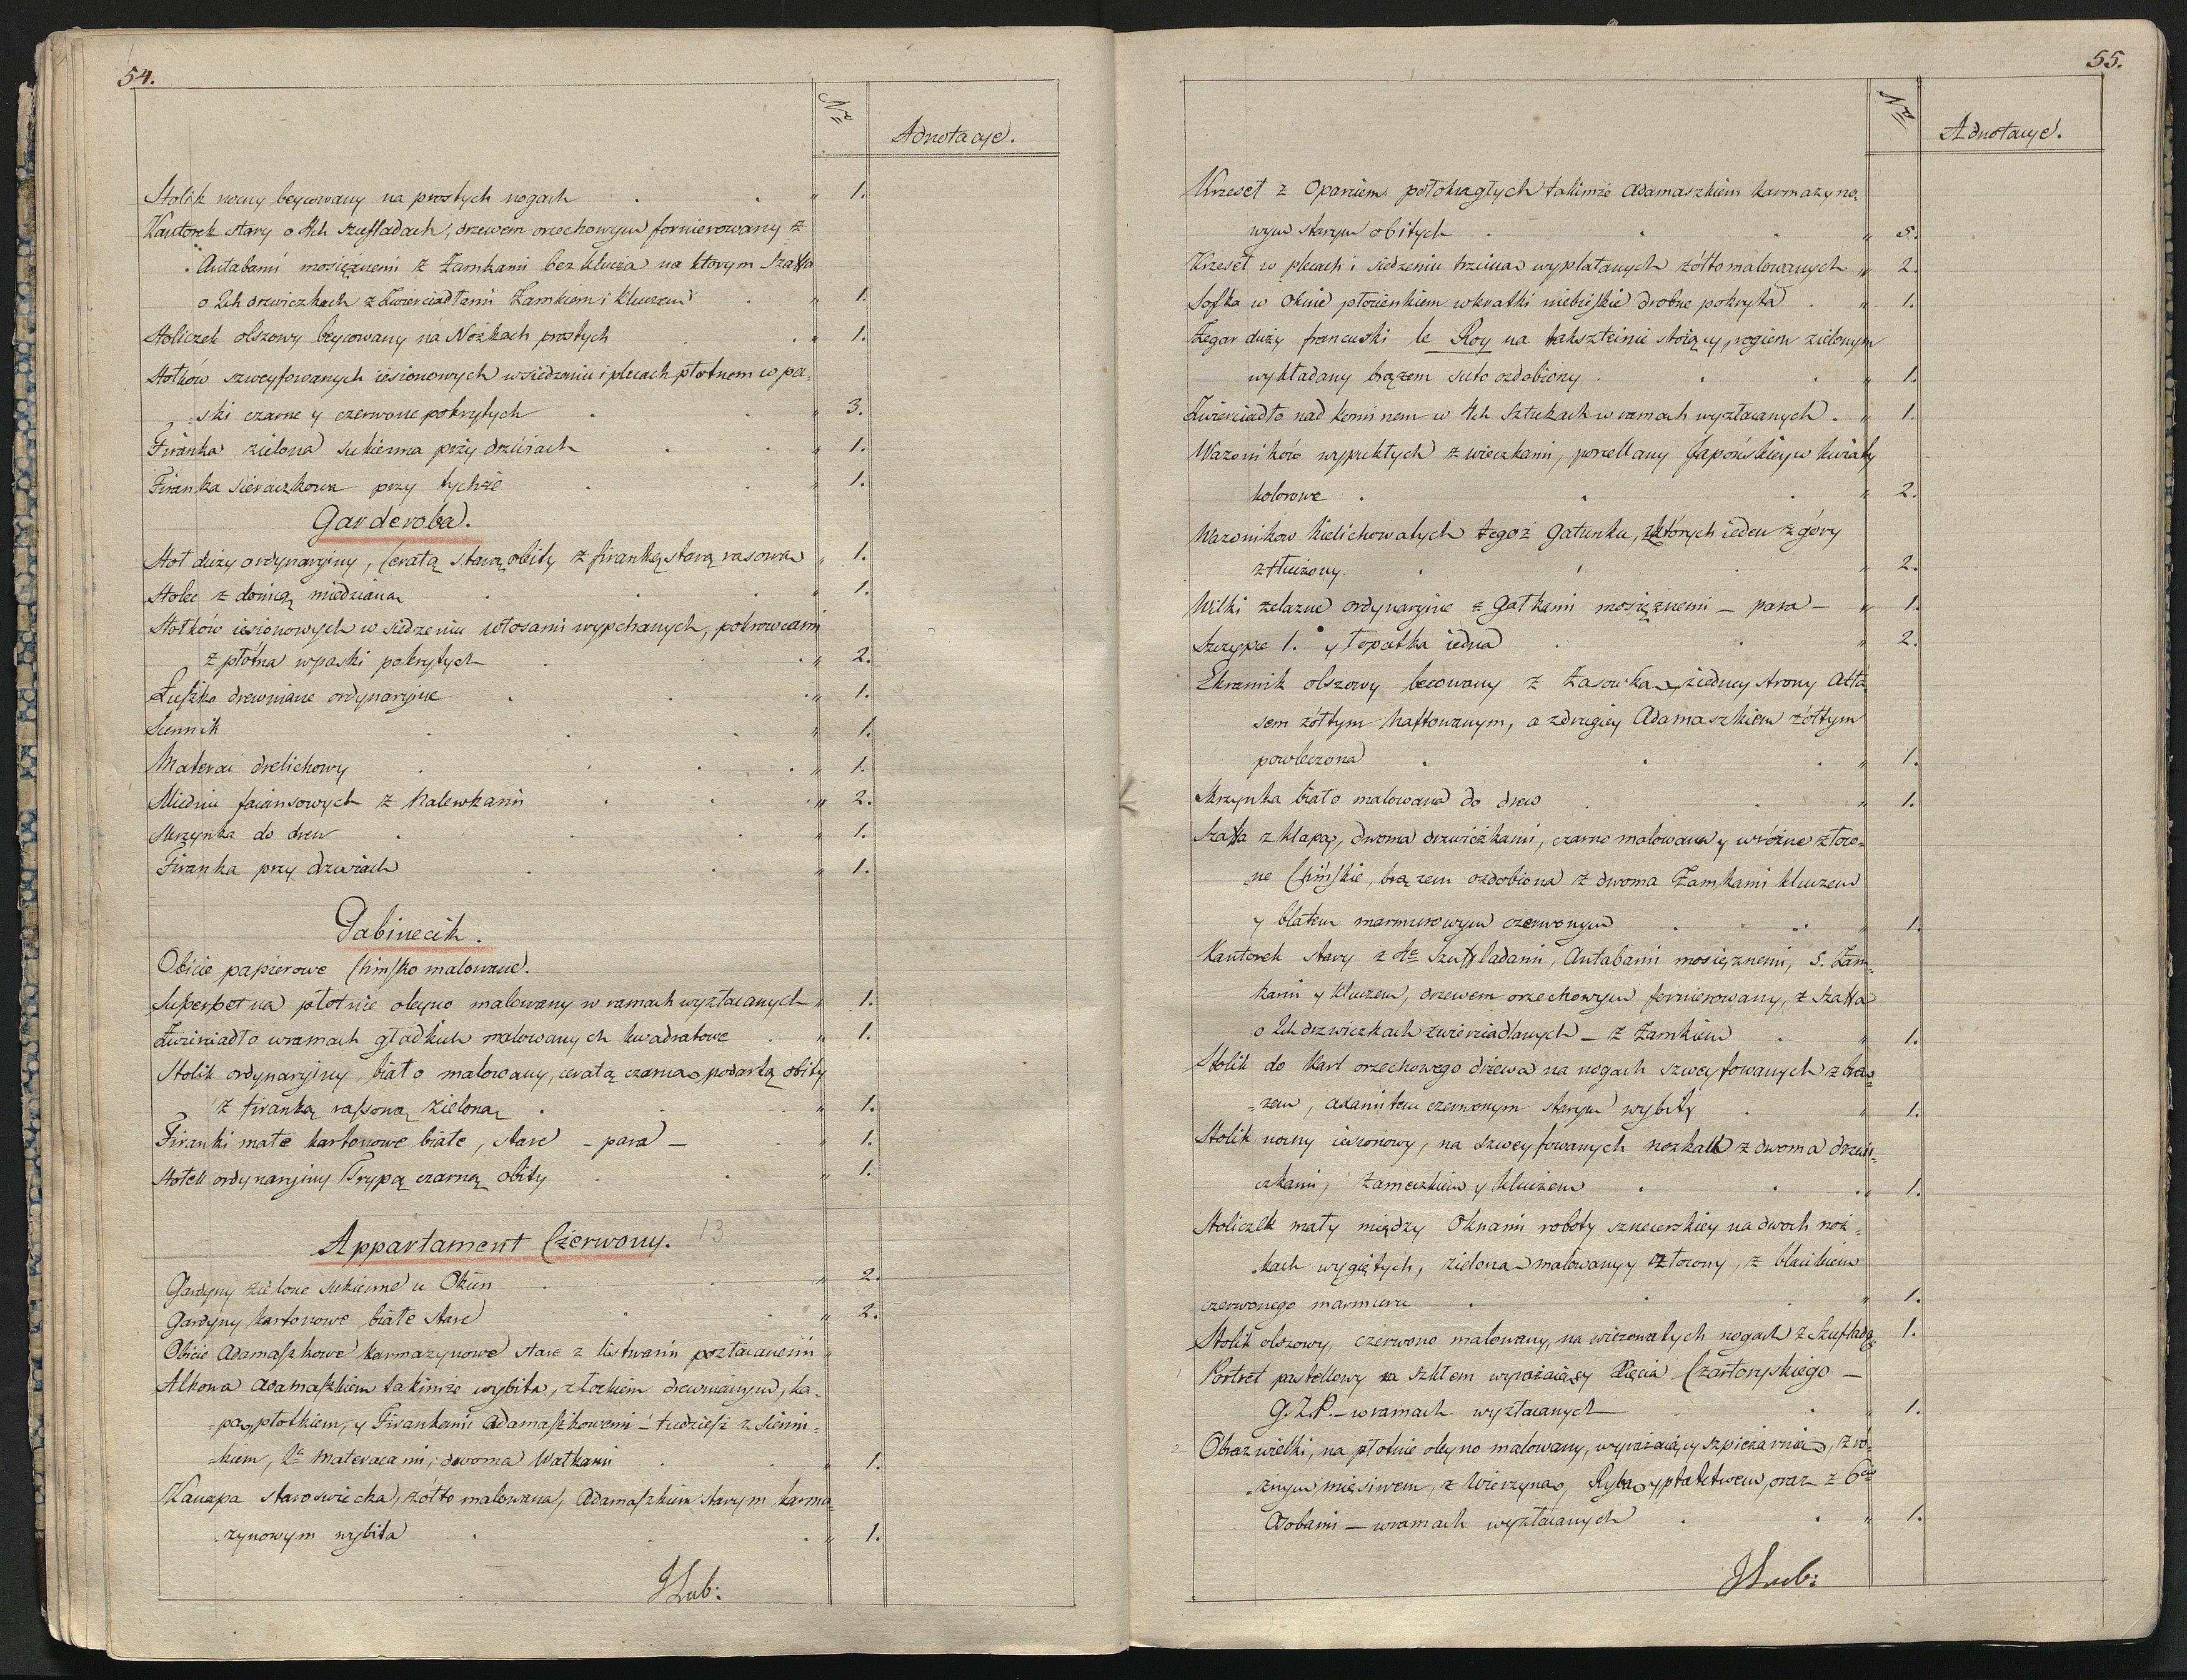 54.
Nro
Adnotacye.
Stolik nocny beycowany na prostych nogach „ 1.
Kantorek stary o 4ch szufladach, drzewem orzechowym fornierowany z
Antabami mosiężnemi z Zamkami bez klucza na ktorym Szaffa
o 2ch drzwiczkach z Zwierciadłami Zamkiem i kluczem „ 1.
Stoliczek olszowy beycowany na Nożkach prostych „ 1.
Stołków szweyfowanych iesionowych w siedzeniu i plecach płotnem w pa-
-ski czarne y czerwone pokrytych „ 3.
Firanka zielona sukienna przy drzwiach „ 1.
Firanka sieraczkowa przy tychże „ 1.
Garderoba.
Stoł duży ordynaryiny, Ceratą starą obity z firanką starą rasową „ 1.
Stolec z donicą miedzianą „ 1.
Stołków iesionowych w siedzeniu włosami wypchanych, pokrowcami
z płótna w paski pokrytych „ 2.
Łuszko drewniane ordynaryine „ 1.
Siennik „ 1.
Materac drelichowy „ 1.
Miednic faiansowych z Nalewkami „ 2.
Skrzynka do drew „ 1.
Firanka przy drzwiach „ 1.
Gabinecik.
Obicie papierowe Chińsko malowane.
Superpot na płotnie oleyno malowany w ramach wyzłacanych „ 1.
Zwierciadło w ramach gładkich malowanych kwadratowe „ 1.
Stolik ordynaryiny biało malowany, ceratą czarną podartą obity
z firanką rassową zieloną „ 1.
Firanki małe kartonowe białe, stare - para - „ 1.
Stołek ordynaryiny Trypą czarną obity „ 1.
Appartament Czerwony. 13
Gardyny zielone sukienne u Okien „ 2.
Gardyny kartonowe białe stare „ 2.
Obicie Adamaszkowe karmazynowe stare z listwami pozłacanemi „
Alkowa Adamaszkiem takimże wybita, z łożkiem drewnianym, ka-
-pą, płotkiem, y Firankami Adamaszkowemi - tudziesz z sienni-
-kiem, 2ma Materacami, dwoma Wałkami „ 1.
Kanapa staroswiecka, żółto malowana, Adamaszkiem starym karma-
-zynowym wybita „ 1.
JLub:
55.
Nro
Adnotacye.
Krzeseł z Oparciem połokrągłych takimże Adamaszkiem karmazyno-
wym starym obitych „ 5.
Krzeseł w plecach i siedzeniu trzciną wyplatanych żółto malowanych „ 2.
Sofka w Oknie płocienkiem w kratki niebieskie drobne pokryta „ 1.
Zegar duży francuski le Roy na takszteinie stoiący, rogiem zielonym
wykładany brązem suto ozdobiony „ 1.
Zwierciadło nad kominem w 4ch Sztukach w ramach wyzłacanych „ 1.
Wazoników wypukłych z wieczkami, porcellany Japońskiey w kwiaty
kolorowe „ 2.
Wazonikow Kielichowatych tegoż Gatunku, z których ieden z góry
ztłuczony „ 2.
Wilki żelazne ordynaryine z Gałkami mosiężnemi - para - „ 1.
Szczypce 1. y łopatka iedna „ 2.
Ekranik olszowy becowany z Zasówką, z iedney strony Atła
sem żółtym haftowanym, a z drugiey Adamaszkiem żółtym
powleczona „ 1.
Skrzynka biało malowana do drew „ 1.
Szaffa z klapą, dwoma drzwiczkami, czarno malowana y w różne złoco-
ne Chińskie, brązem ozdobiona z dwoma Zamkami kluczem
y blatem marmurowym czerwonym „ 1.
Kantorek stary z 4a Szuffladami, Antabami mosiężnemi, 5. Zam-
kami y kluczem, drzewem orzechowym fornierowany, z Szaffą
o 2ch drzwiczkach zwierciadlanych - z Zamkiem „ 1.
Stolik do kart orzechowego drzewa na nogach szweyfowanych z brą-
-zem, axamitem czerwonym starym wybity „ 1.
Stolik nocny iesionowy, na szweyfowanych nożkach z dwoma drzwi-
czkami, Zameczkiem y kluczem „ 1.
Stoliczek mały między Oknami roboty sznycerskiey na dwoch noż-
-kach wygiętych, zielono malowany y złocony, z blacikiem
czerwonego marmuru „ 1.
Stolik olszowy, czerwono malowany, na wierzowatych nogach z Szufladą „ 1.
1 Portret pastellowy za szkłem wyrażaiący Xięcia Czartoryskiego -
G.Z.P. - w ramach wyzłacanych „ 1.
2 Obraz wielki, na płotnie oleyno malowany, wyrażaiący szpiżarnią, z ró-
żnym mięsiwem, z Zwierzyną, Rybą y ptactwem, oraz z 6cią
Osobami - w ramach wyzłacanych „ 1.
JLub: